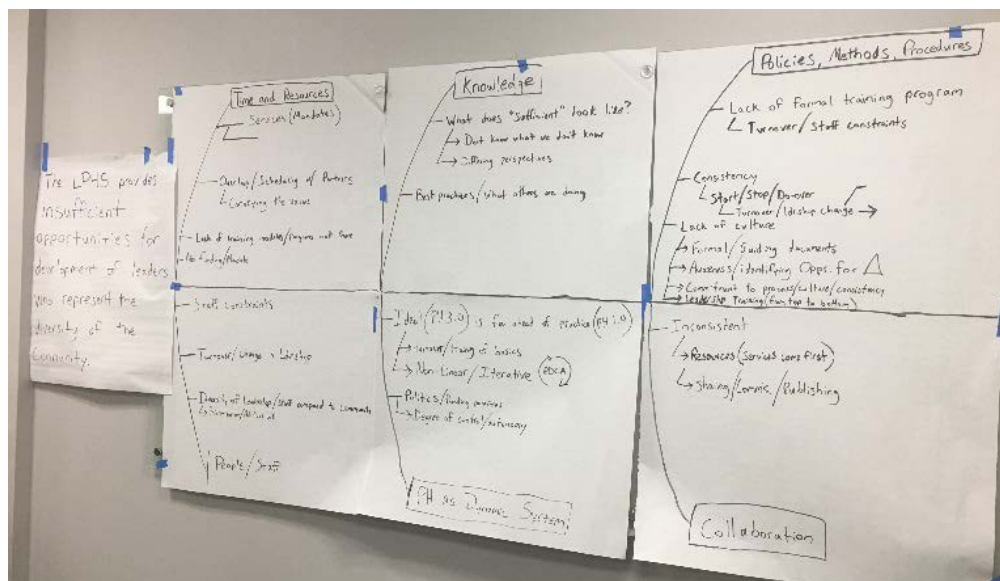 The LPHS provides
insufficient
opportunities for
development of leaders
who represent the
diversity of the
Community.
Time and Resources
Services (Mandates)
Overlap/Scheduling of Partners
the value
Lack of training modules/programs not there
No Funding/
Staff constraints
Turnover/Change in Ldrship
Diversity of Leadership/Staff compared to community
People/Staff
Knowledge
What does "sufficient" look like?
Don't know what we don't know
Differing perspectives
Best practices/What others are doing
Ideal (PH 3.0) is far ahead of practice (PH 2.0)
Turnover/ of basics
Non-Linear/Iterative (PDCA)
Politics/Funding
Degree of control/autonomy
PH as Dynamic System
Policies, Methods, Procedures
Lack of formal training program
Turnover/Staff constraints
Consistency
Start/Stop/Do-over
Turnover/ldrship change →
Lack of culture
Formal/Guiding documents
Awareness/identifying Opps. for △
Commitment to process/culture/consistency
Leadership Training (from top to bottom)
Inconsistent
Resources (Services come first)
Sharing/Comms./Publishing
Collaboration